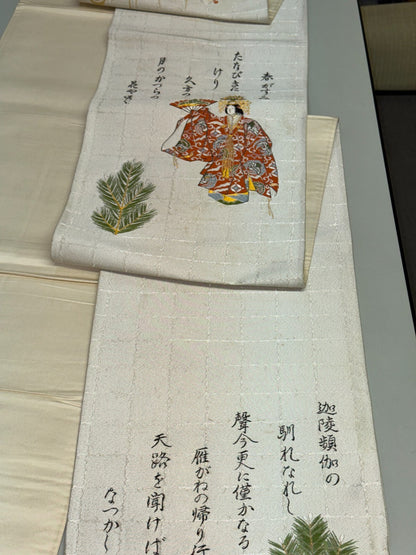 春がすみ
たなびきに
けり
久方の
月のかつらの
花やさく
迦陵頻伽の
馴れなれし
聲今更に僅かなる
雁がねの帰り行
天路を聞けば
なつかし